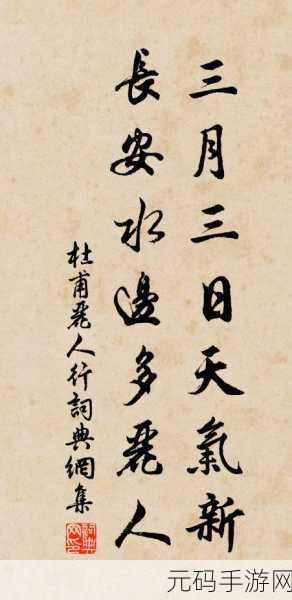 三月三日天氣新
長安水邊多麗人
杜甫麗人行詞典網集
元码手游网